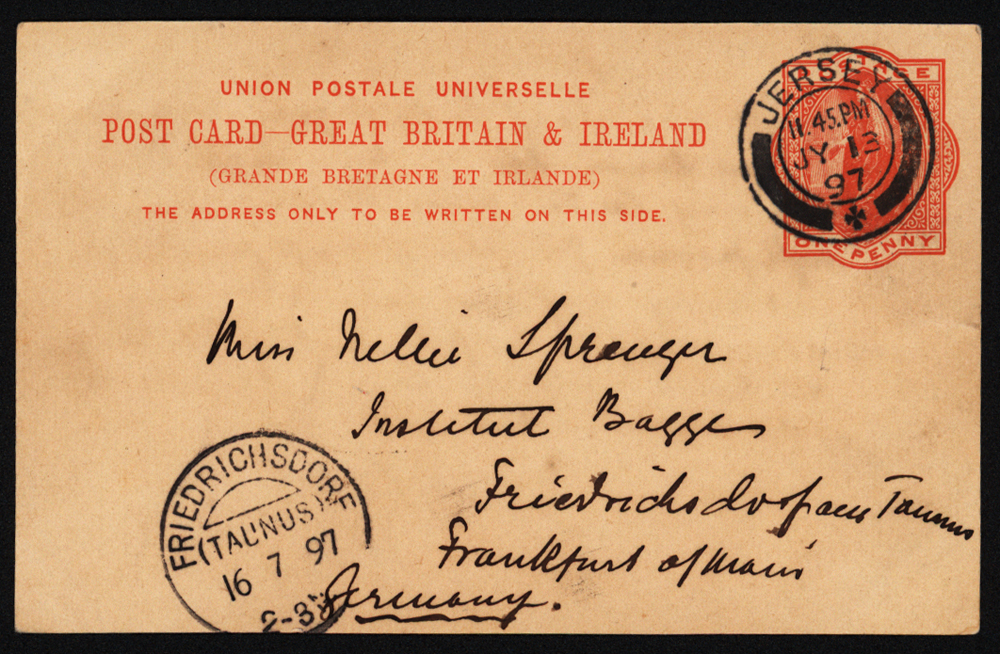 UNION POSTALE UNIVERSELLE
POST CARD—GREAT BRITAIN & IRELAND
(GRANDE BRETAGNE ET IRLANDE)
THE ADDRESS ONLY TO BE WRITTEN ON THIS SIDE.
JERSEY
11.45.PM
JY 13
97
POSTAGE
ONE PENNY
Miss Nellie Sprenger
Institut Bagge
Friedrichsdorf am Taunus
Frankfurt a/Main
Germany.
FRIEDRICHSDORF
(TAUNUS)
16 7 97
2-3N